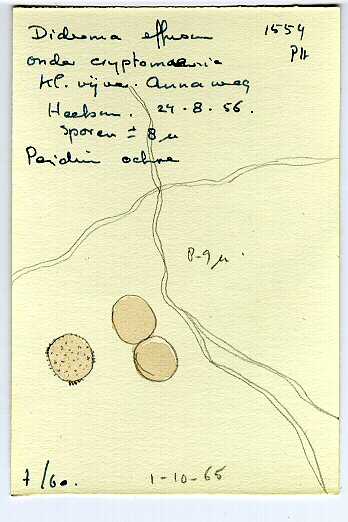 Diderma effusum 1554
onder cryptomeria PH
Kl. vijver. Annaweg
Heelsum. 24-8-56.
Sporen ± 8 µ
Peridium ochre
8-9 µ.
7/60. 1-10-65